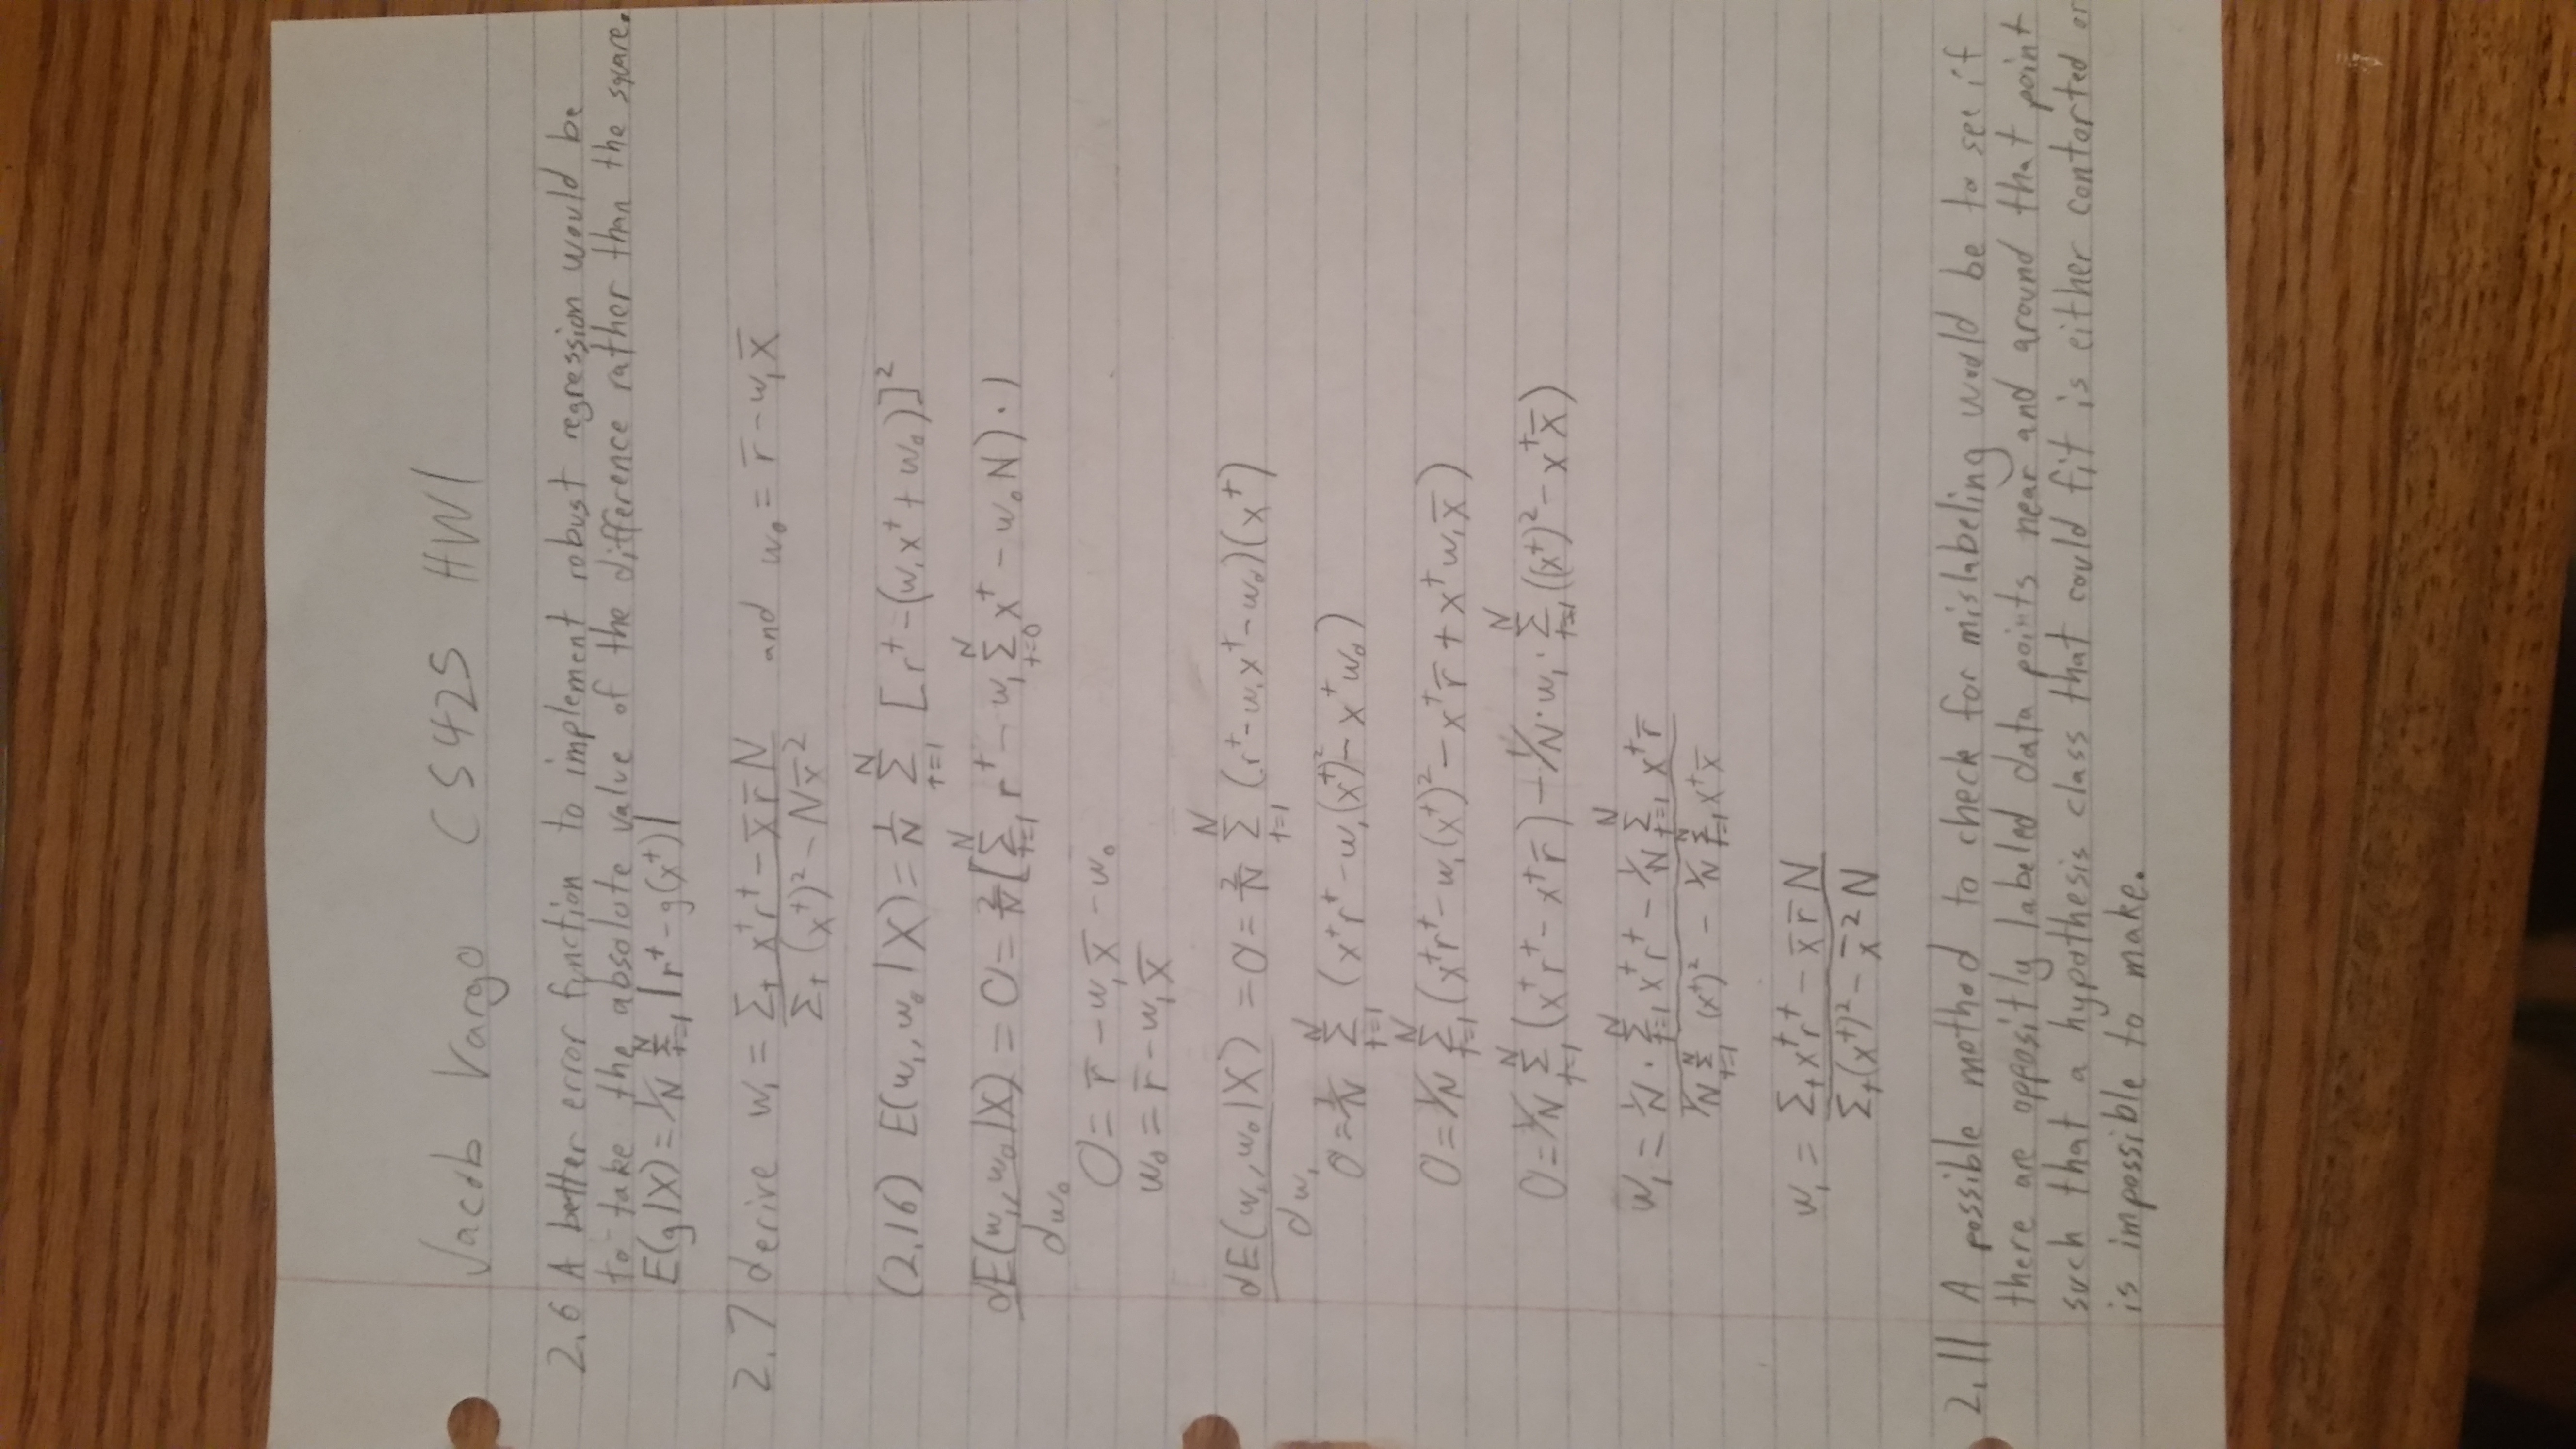 Jacob Vargo CS425 HW1
2.6 A better error function to implement robust regression would be
to take the absolute value of the difference rather than the square.
E(g|X) = 1/N Σ_{t=1}^{N} |r^t - g(x^t)|
2.7 derive w₁ = (Σ_t x^t r^t - x̄ r̄ N) / (Σ_t (x^t)² - N x̄²) and w₀ = r̄ - w₁x̄
(2.16) E(w₁, w₀ | X) = 1/N Σ_{t=1}^{N} [r^t - (w₁x^t + w₀)]²
dE(w₁, w₀|X) / dw₀ = 0 = 2/N [Σ_{t=1}^{N} r^t - w₁ Σ_{t=0}^{N} x^t - w₀N) · 1
0 = r̄ - w₁x̄ - w₀
w₀ = r̄ - w₁x̄
dE(w₁, w₀|X) / dw₁ = 0 = 2/N Σ_{t=1}^{N} (r^t - w₁x^t - w₀)(x^t)
0 = 1/N Σ_{t=1}^{N} (x^t r^t - w₁(x^t)² - x^t w₀)
0 = 1/N Σ_{t=1}^{N} (x^t r^t - w₁(x^t)² - x^t r̄ + x^t w₁x̄)
0 = 1/N Σ_{t=1}^{N} (x^t r^t - x^t r̄) - 1/N · w₁ · Σ_{t=1}^{N} ((x^t)² - x^t x̄)
w₁ = (1/N · Σ_{t=1}^{N} x^t r^t - 1/N Σ_{t=1}^{N} x^t r̄) / (1/N Σ_{t=1}^{N} (x^t)² - 1/N Σ_{t=1}^{N} x^t x̄)
w₁ = (Σ_t x^t r^t - x̄ r̄ N) / (Σ_t (x^t)² - x̄² N)
2.11 A possible method to check for mislabeling would be to see if
there are oppositly labeled data points near and around that point
such that a hypothesis class that could fit is either contorted or
is impossible to make.